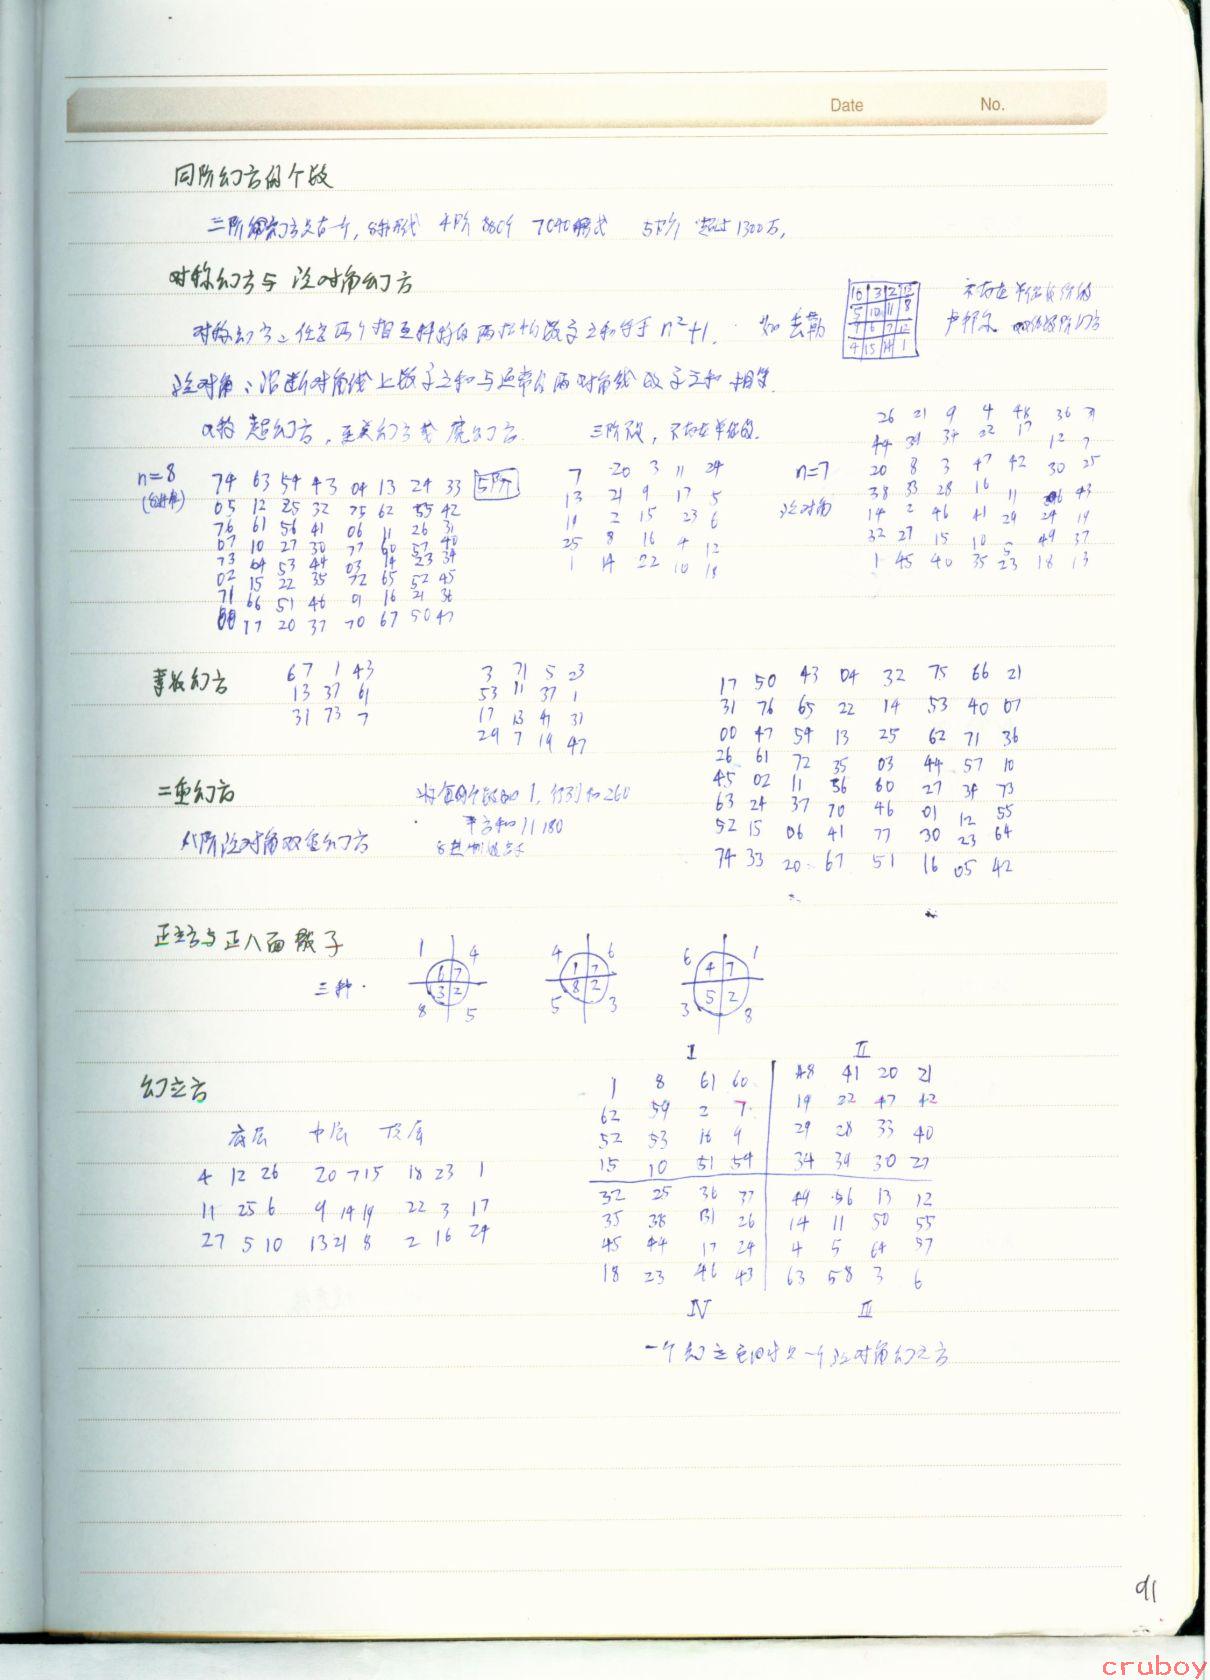 Date No.
同阶幻方的个数
三阶幻方只有一个, 8种形式 4阶 880个 7040种形式 5阶 超过1300万,
对称幻方与泛对角幻方
对称幻方: 任意两个相互对称的两格的数字之和等于 n²+1. 如 丢勒
16 3 2 13
5 10 11 8
9 6 7 12
4 15 14 1
不存在单偶数阶的
泛对角: 沿断对角线上数字之和与通常的两对角线数字之和相等.
又称 超幻方, 完美幻方或 魔幻方. 三阶没, 不存在单偶的.
n=8
74 63 54 43 04 13 24 33
05 12 25 32 75 62 55 42
76 61 56 41 06 11 26 31
07 10 27 30 77 60 57 40
73 64 53 44 03 14 23 34
02 15 22 35 72 65 52 45
71 66 51 46 01 16 21 36
00 17 20 37 70 67 50 47
5阶
7 20 3 11 24
13 21 9 17 5
19 2 15 23 6
25 8 16 4 12
1 14 22 10 18
n=7
泛对角
26 21 9 4 48 36 31
44 39 34 22 17 12 7
20 8 3 47 42 30 25
38 33 28 16 11 6 43
14 2 46 41 29 24 19
32 27 15 10 5 49 37
1 45 40 35 23 18 13
素数幻方
67 1 43
13 37 61
31 73 7
3 71 5 23
53 11 37 1
17 13 41 31
29 7 19 47
二重幻方
八阶泛对角双重幻方
将每个数加1, 行列和260
平方和11180
8进制数字
17 50 43 04 32 75 66 21
31 76 65 22 14 53 40 07
00 47 54 13 25 62 71 36
26 61 72 35 03 44 57 10
45 02 11 56 60 27 34 73
63 24 37 70 46 01 12 55
52 15 06 41 77 30 23 64
74 33 20 67 51 16 05 42
正立方与正八面骰子
三种.
1 4
6 7
3 2
8 5
4 6
1 7
8 2
5 3
6 1
4 7
5 2
3 8
幻立方
底层 中层 顶层
4 12 26 20 7 15 18 23 1
11 25 6 9 14 19 22 3 17
27 5 10 13 21 8 2 16 24
I II
1 8 61 60 48 41 20 21
62 59 2 7 19 22 47 42
52 53 16 9 29 28 33 40
15 10 51 54 34 39 30 27
32 25 36 37 49 56 13 12
35 38 31 26 14 11 50 55
45 44 17 24 4 5 64 57
18 23 46 43 63 58 3 6
IV III
一个幻立方同时又一个泛对角幻立方
91
cruboy